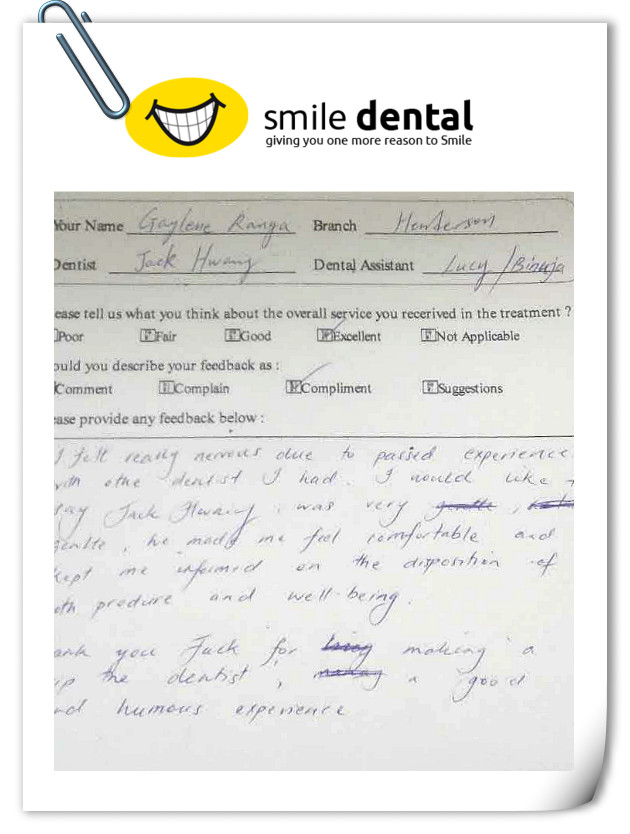 smile dental
giving you one more reason to Smile
Your Name Gaylene Ranga Branch Henderson
Dentist Jack Hwang Dental Assistant Lucy / Binuja
ease tell us what you think about the overall service you recerived in the treatment ?
Poor Fair Good Excellent Not Applicable
ould you describe your feedback as :
Comment Complain Compliment Suggestions
ase provide any feedback below :
I felt really nervous due to passed experience
with othe dentist I had. I would like
say Jack Hwang was very gentle,
gentle, he made me feel comfortable and
kept me informed on the disposition of
oth produre and well-being.
ank you Jack for making a
ip the dentist, a good
nd humous experience